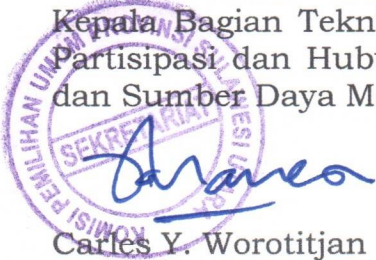 Kepala Bagian Tekn
Partisipasi dan Hub
dan Sumber Daya M
KOMISI PEMILIHAN UMUM PROVINSI SULAWESI UTARA
SEKRETARIAT
Carles Y. Worotitjan